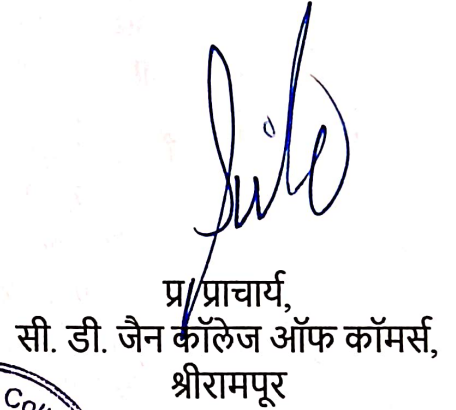 प्र. प्राचार्य,
सी. डी. जैन कॉलेज ऑफ कॉमर्स,
श्रीरामपूर